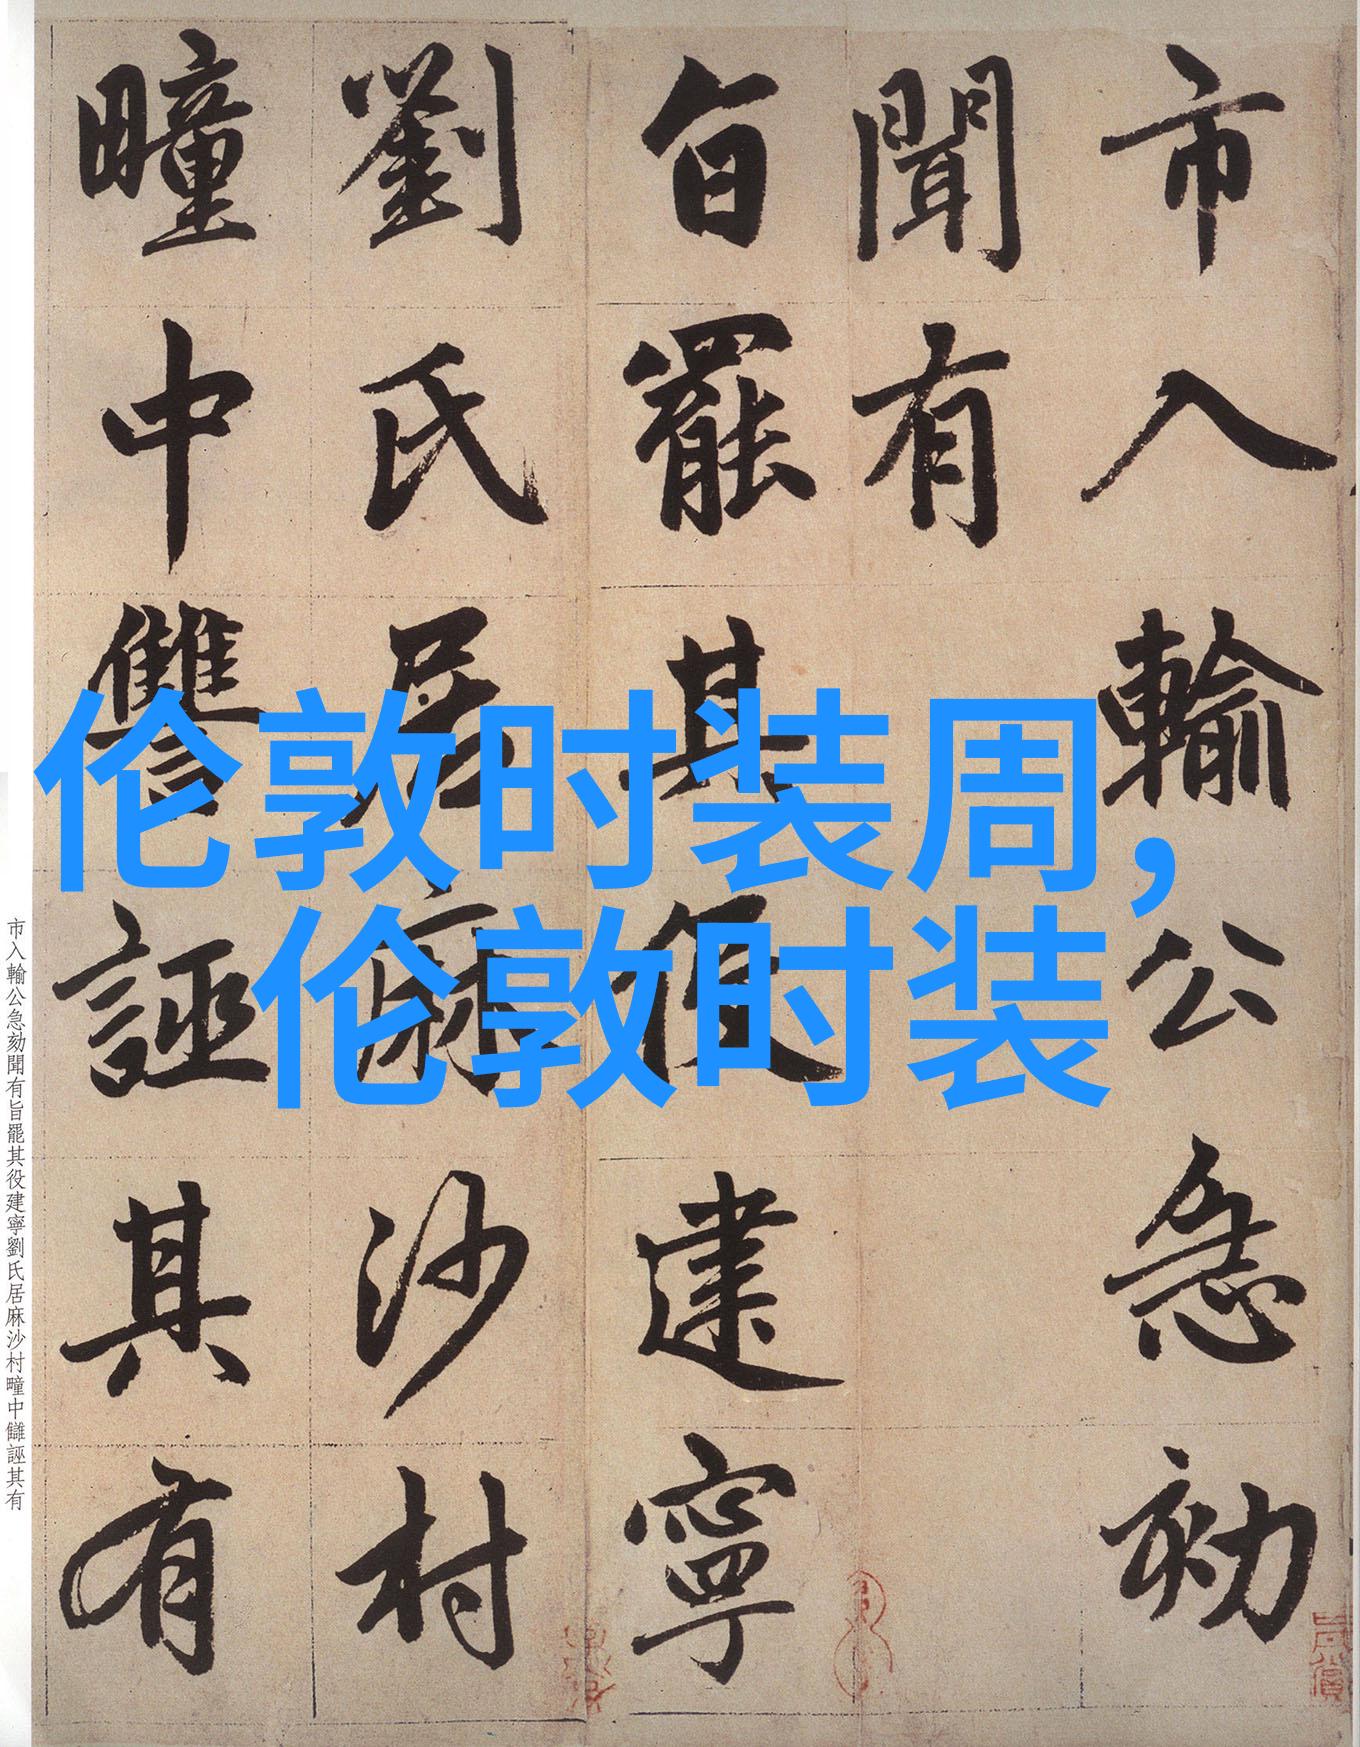 市入輸公急劾
聞有
旨罷其役建寧
劉氏居麻沙村
疃中讐誣其有
伦敦时装周，
伦敦时装
市入輸公急劾聞有旨罷其役建寧劉氏居麻沙村疃中讎誣其有